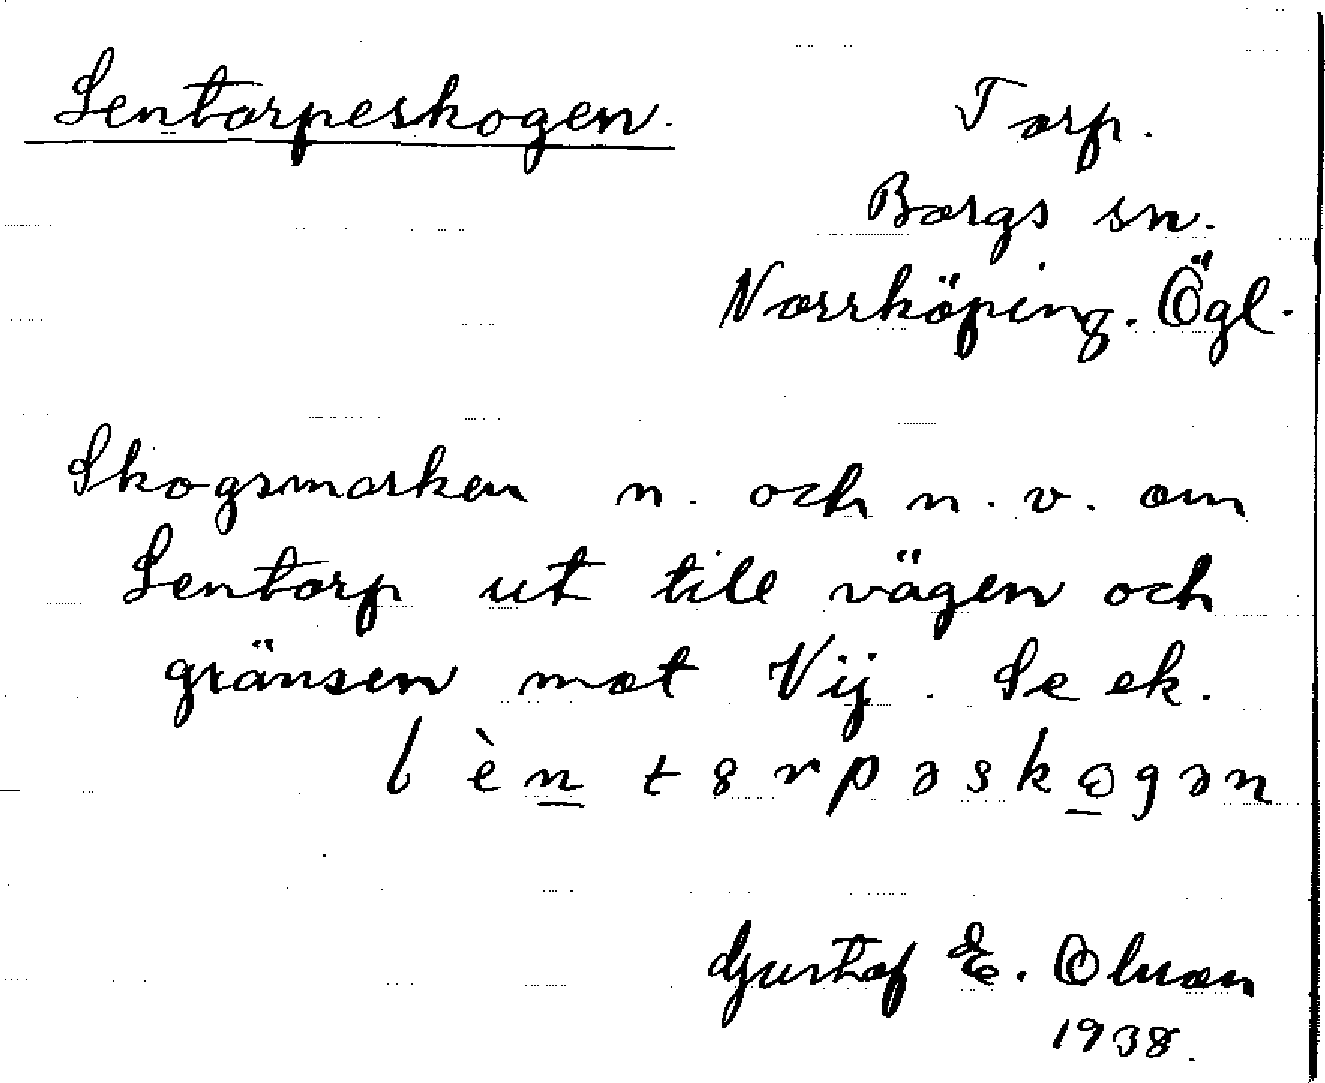 Lentorpeskogen. Torp.
Borgs sn.
Norrköping. Ögl.
Skogsmarken n. och n.v. om
Lentorp ut till vägen och
gränsen mot Vij. Se ek.
Gustaf E. Olson
1938.